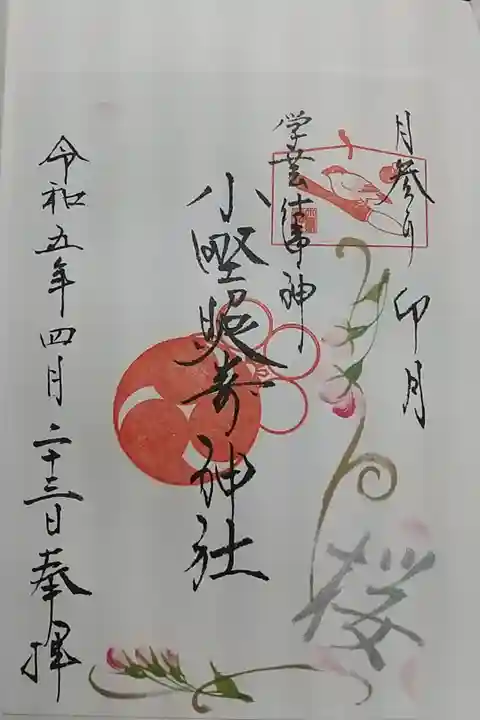 月参り 卯月
学業の神
小野照崎神社
令和五年四月二十三日 奉拝
桜